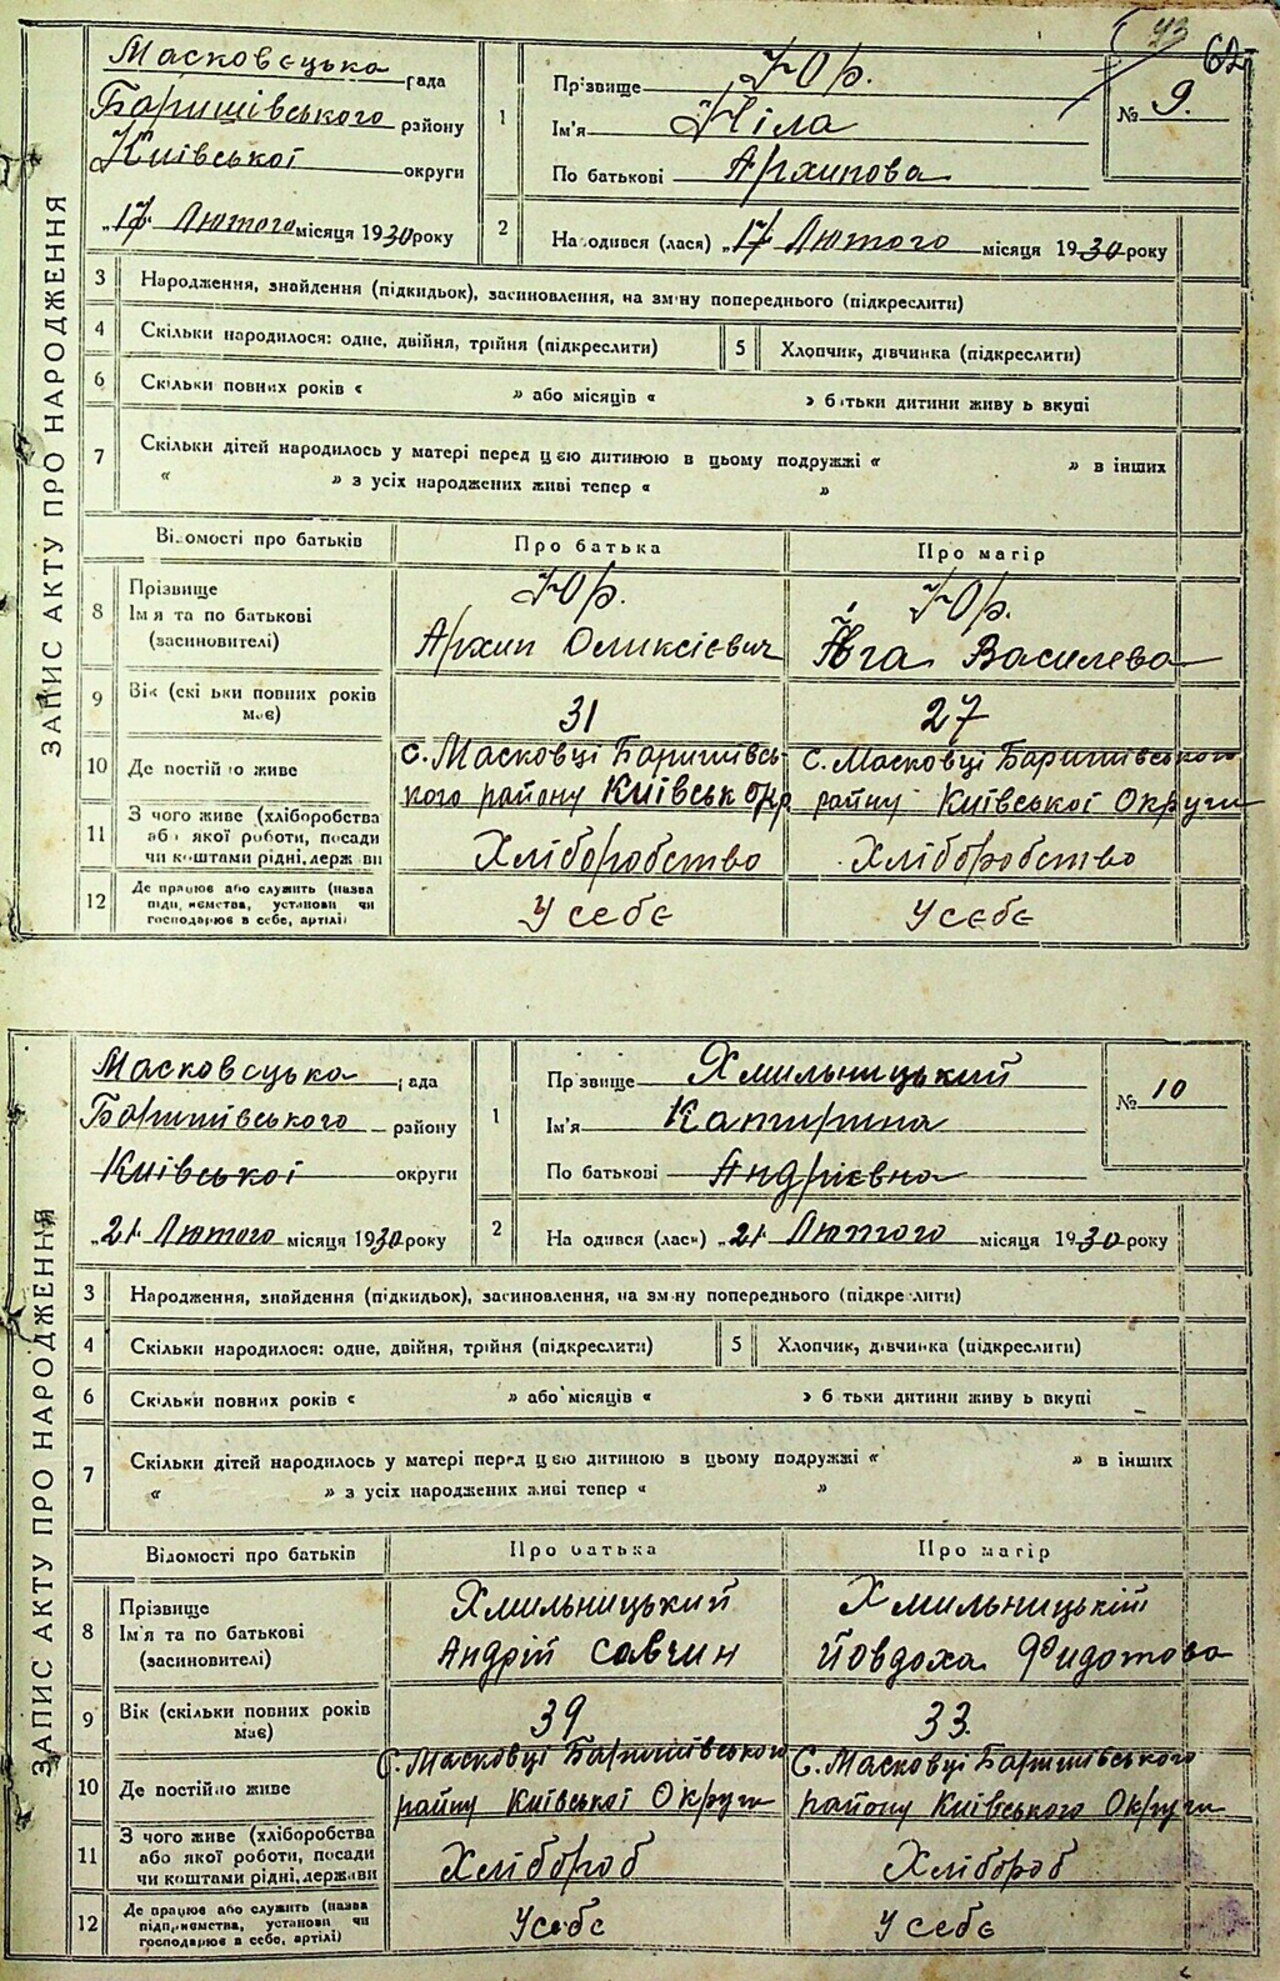 43 62
ЗАПИС АКТУ ПРО НАРОДЖЕННЯ
Масковєцька рада
Баришівського району
Київської округи
„17“ Лютого місяця 1930 року
1
Прізвище Юр.
Ім'я Ніла
По батькові Архипова
№ 9.
2 На одився (лася) „17 Лютого місяця 1930 року
3 Народження, знайдення (підкидьок), засиновлення, на зміну попереднього (підкреслити)
4 Скільки народилося: одне, двійня, трійня (підкреслити) 5 Хлопчик, дівчинка (підкреслити)
6 Скільки повних років « » або місяців « » батьки дитини живу ь вкупі
7 Скільки дітей народилось у матері перед цією дитиною в цьому подружжі « » в інших
« » з усіх народжених живі тепер « »
Відомості про батьків Про батька Про матір
8 Прізвище Юр. Юр.
Ім'я та по батькові Архип Оликсієвич Ївга Василева
(засиновителі)
9 Вік (скільки повних років має) 31 27
10 Де постійно живе с. Масковці Баришівсь- с. Масковці Баришівського
кого району Київськ окр району Київської Округи
11 З чого живе (хліборобства
або якої роботи, посади Хліборобство Хліборобство
чи коштами рідні, держави
12 Де працює або служить (назва
підприємства, установи чи У себе У себе
господарює в себе, артілі)
ЗАПИС АКТУ ПРО НАРОДЖЕННЯ
Масковецька рада
Баришівського району
Київської округи
„21. Лютого місяця 1930 року
1
Прізвище Хмильницький
Ім'я Катирина
По батькові Андрієвна
№ 10
2 На одився (лася) „21. Лютого місяця 1930 року
3 Народження, знайдення (підкидьок), засиновлення, на зміну попереднього (підкреслити)
4 Скільки народилося: одне, двійня, трійня (підкреслити) 5 Хлопчик, дівчинка (підкреслити)
6 Скільки повних років « » або місяців « » батьки дитини живу ь вкупі
7 Скільки дітей народилось у матері перед цією дитиною в цьому подружжі « » в інших
« » з усіх народжених живі тепер « »
Відомості про батьків Про батька Про матір
8 Прізвище Хмильницький Хмильницькій
Ім'я та по батькові Андрій Савчин Йовдоха Фидотова
(засиновителі)
9 Вік (скільки повних років має) 39 33.
10 Де постійно живе С. Масковці Баришівського С. Масковці Баришівського
району Київської Округи району Київського Округи
11 З чого живе (хліборобства
або якої роботи, посади Хлібороб Хлібороб
чи коштами рідні, держави
12 Де працює або служить (назва
підприємства, установи чи У себе У себе
господарює в себе, артілі)